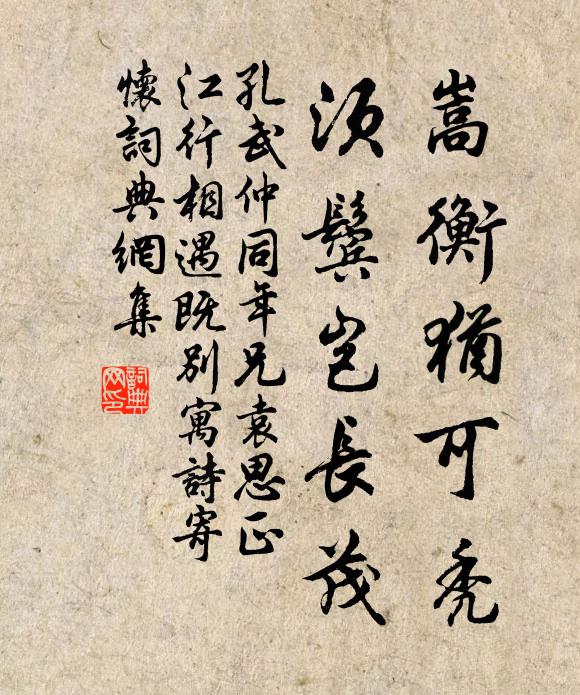 嵩衡猶可禿
須鬢豈長茂
孔武仲同年兄袁思正
江行相遇既別寓詩寄
懷詞典網集
詞典
网印